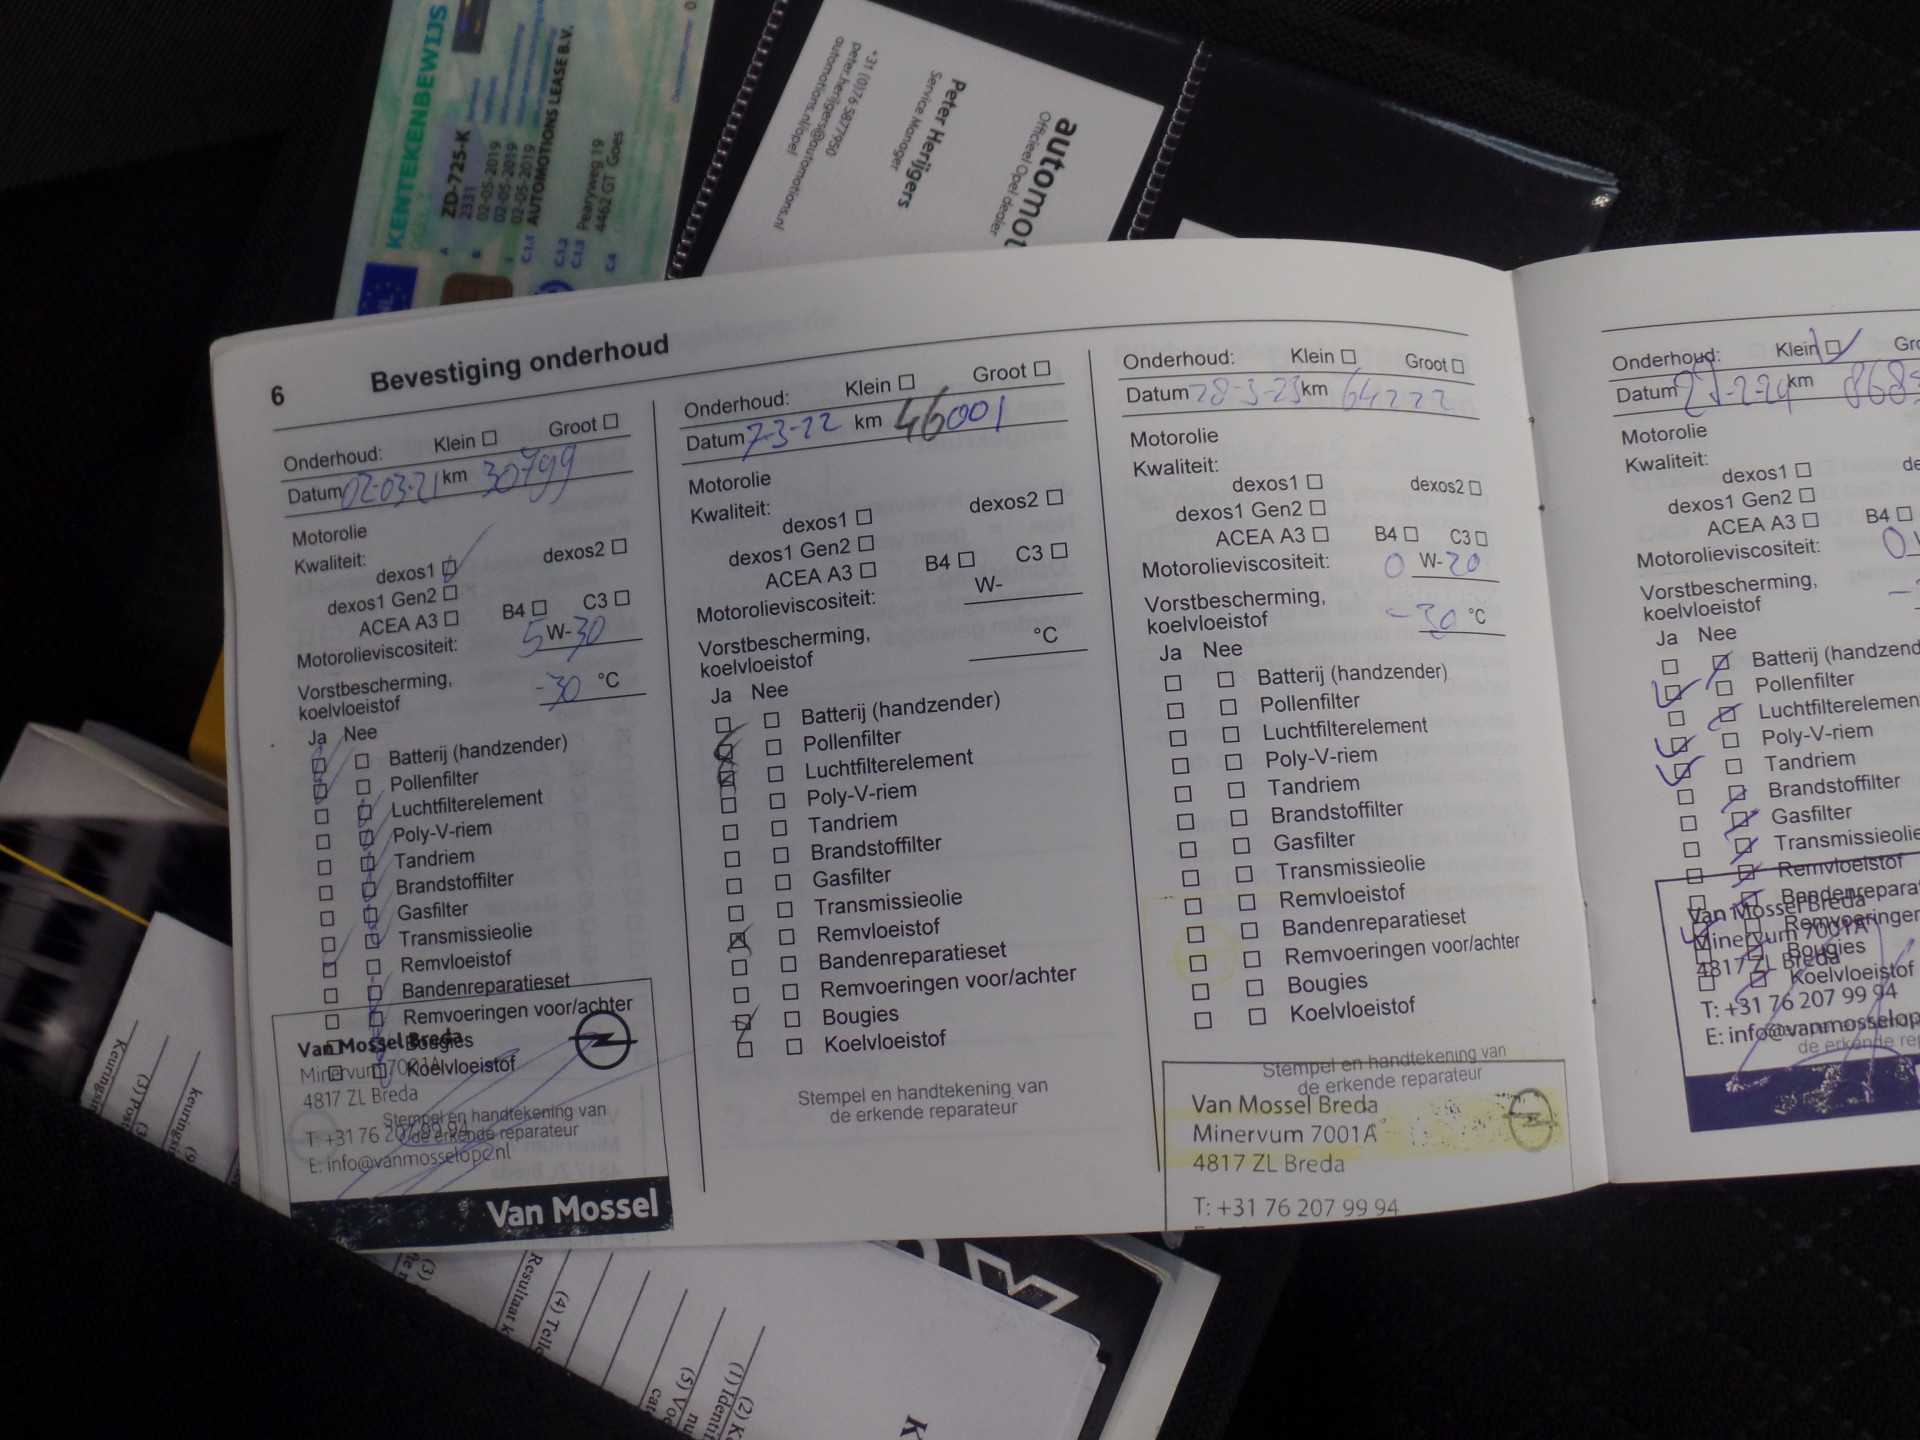 KENTEKENBEWIJS
A ZD-725-K
2331
B 02-05-2019
02-05-2019
I 02-05-2019
C.1.1 AUTOMOTIONS LEASE B.V.
C.1.2
C.1.3 Pearyweg 19
4462 GT Goes
C.4
NL
automot
Officieel Opel dealer
Peter Herijgers
Service Manager
+31 (0)76 5877950
peter.herijgers@automotions.nl
automotions.nl/opel
6 Bevestiging onderhoud
Onderhoud: Klein Groot
Datum 02-03-21 km 30799
Motorolie
Kwaliteit:
dexos1 dexos2
dexos1 Gen2
ACEA A3 B4 C3
Motorolieviscositeit: 5 W-30
Vorstbescherming,
koelvloeistof -30 °C
Ja Nee
Batterij (handzender)
Pollenfilter
Luchtfilterelement
Poly-V-riem
Tandriem
Brandstoffilter
Gasfilter
Transmissieolie
Remvloeistof
Bandenreparatieset
Remvoeringen voor/achter
Bougies
Koelvloeistof
Stempel en handtekening van
de erkende reparateur
Van Mossel Breda
Minervum 7001A
4817 ZL Breda
T: +31 76 207 99 94
E: info@vanmosselopel.nl
Van Mossel
Onderhoud: Klein Groot
Datum 7-3-22 km 46001
Motorolie
Kwaliteit:
dexos1 dexos2
dexos1 Gen2
ACEA A3 B4 C3
Motorolieviscositeit: W-
Vorstbescherming,
koelvloeistof °C
Ja Nee
Batterij (handzender)
Pollenfilter
Luchtfilterelement
Poly-V-riem
Tandriem
Brandstoffilter
Gasfilter
Transmissieolie
Remvloeistof
Bandenreparatieset
Remvoeringen voor/achter
Bougies
Koelvloeistof
Stempel en handtekening van
de erkende reparateur
Onderhoud: Klein Groot
Datum 28-3-23 km 64222
Motorolie
Kwaliteit:
dexos1 dexos2
dexos1 Gen2
ACEA A3 B4 C3
Motorolieviscositeit: 0 W-20
Vorstbescherming,
koelvloeistof -30 °C
Ja Nee
Batterij (handzender)
Pollenfilter
Luchtfilterelement
Poly-V-riem
Tandriem
Brandstoffilter
Gasfilter
Transmissieolie
Remvloeistof
Bandenreparatieset
Remvoeringen voor/achter
Bougies
Koelvloeistof
Stempel en handtekening van
de erkende reparateur
Van Mossel Breda
Minervum 7001A
4817 ZL Breda
T: +31 76 207 99 94
Onderhoud: Klein Gro
Datum km 868
Motorolie
Kwaliteit:
dexos1 de
dexos1 Gen2
ACEA A3 B4
Motorolieviscositeit: 0
Vorstbescherming,
koelvloeistof
Ja Nee
Batterij (handzend
Pollenfilter
Luchtfilterelemen
Poly-V-riem
Tandriem
Brandstoffilter
Gasfilter
Transmissieolie
Remvloeistof
Bandenrepara
Remvoeringen
Bougies
Koelvloeistof
Van Mossel Breda
Minervum 7001A
4817 ZL Breda
T: +31 76 207 99 94
E: info@vanmosselop
de erkende re
keuringsin
(3) Post
Resultaat k
(4) Telle
(5) Voe
(1) Identi
(2) K
K